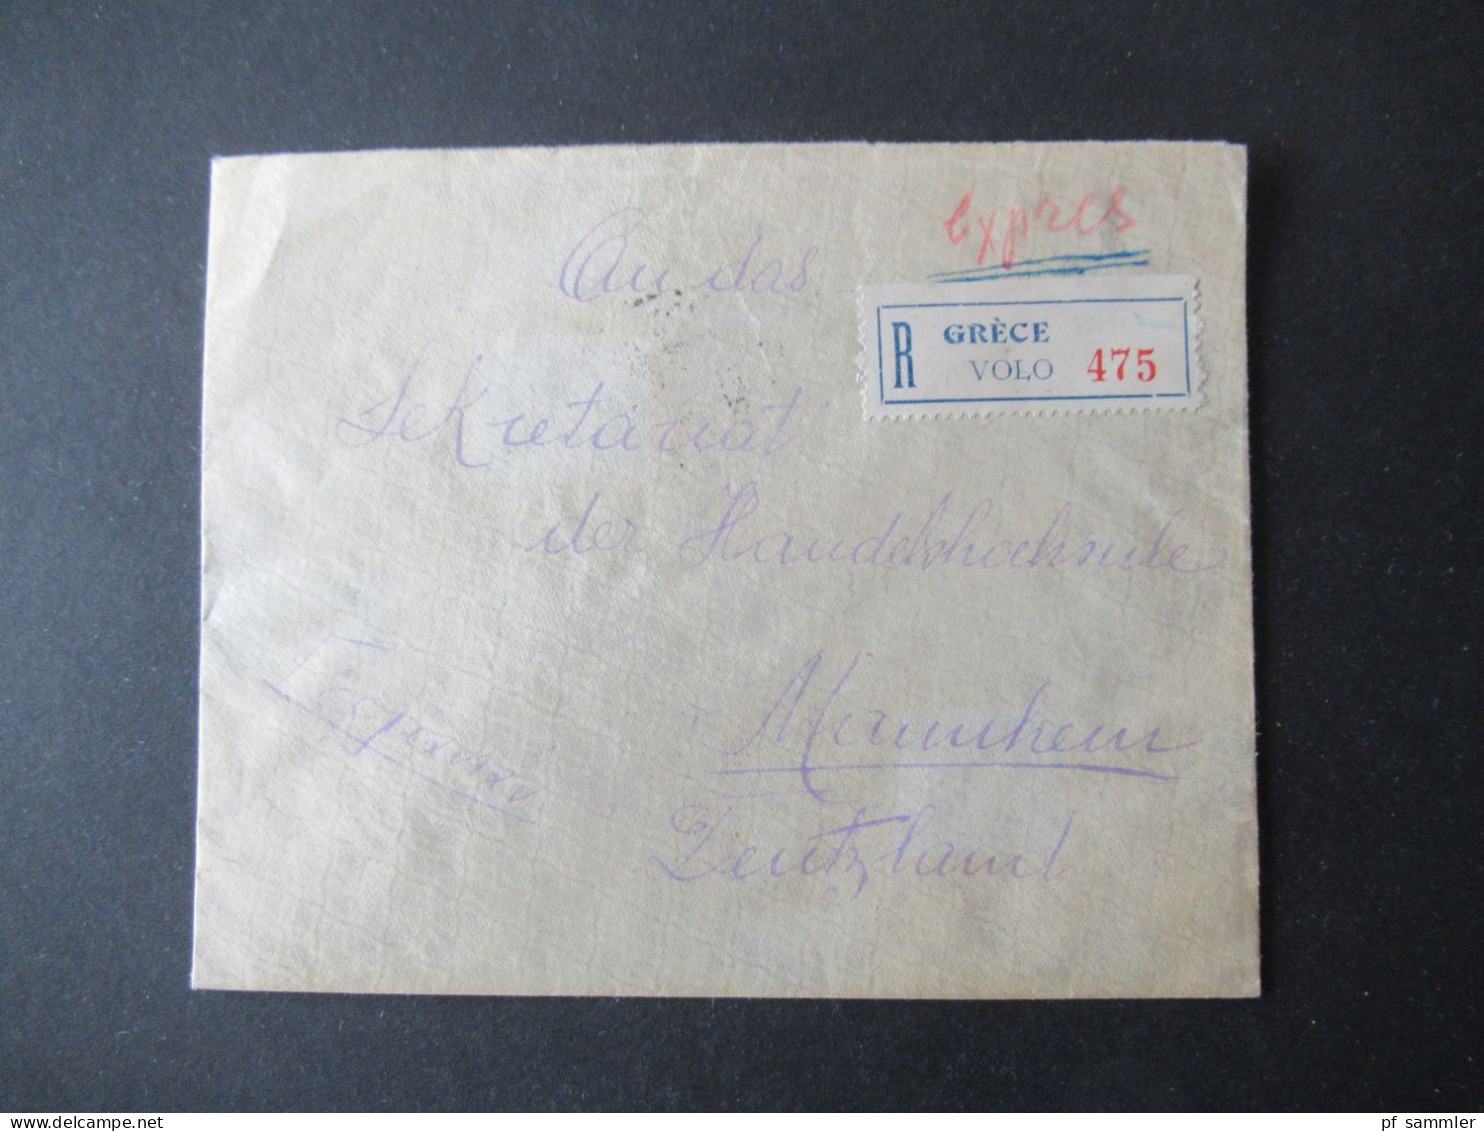 expres
An das
R GRÈCE
VOLO 475
Sekretariat
der Handelshochsule
Mannheim
Deutzland
delcampe.net
pf_sammler